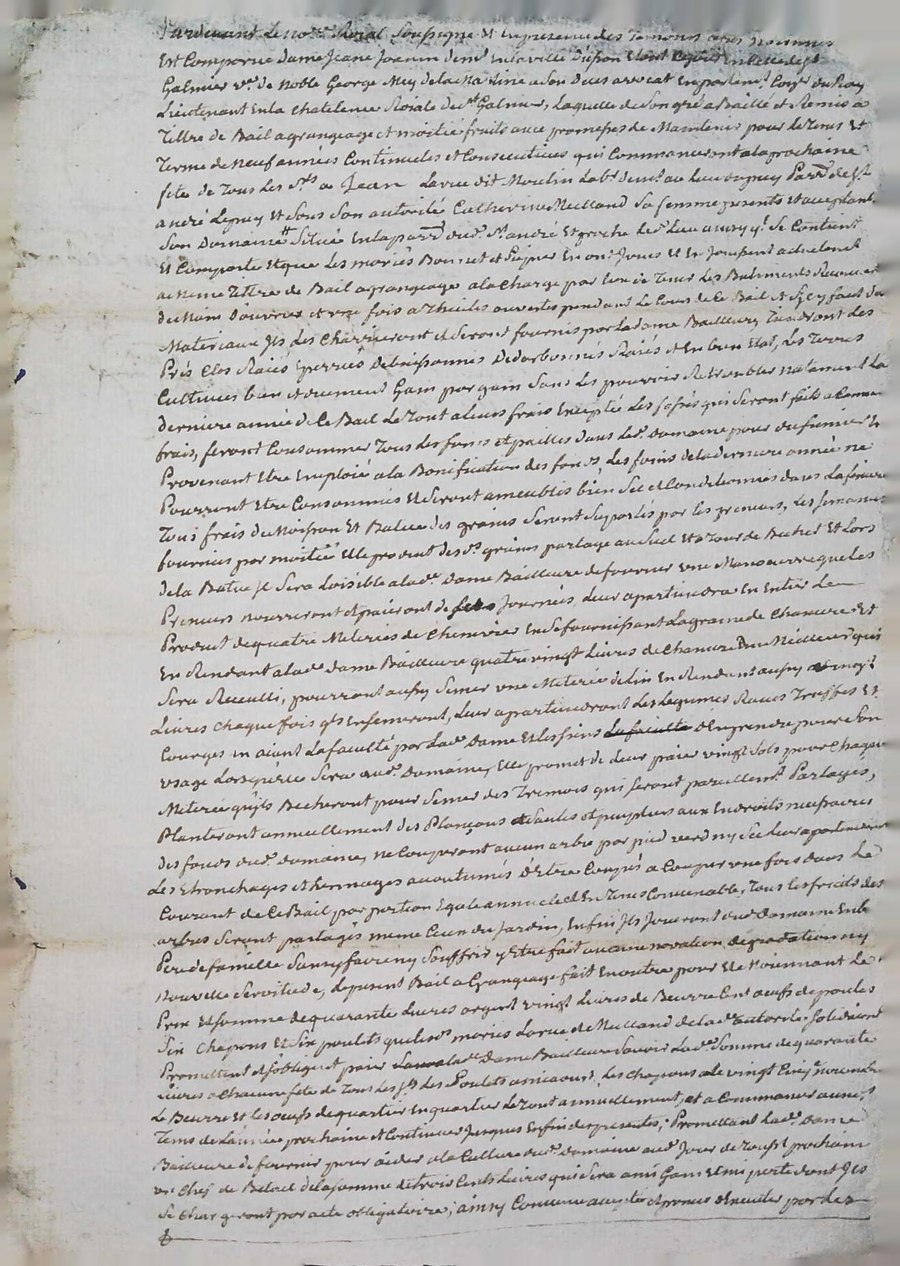 Pardevant le no.re Roial soussigné et en presence des temoins cy après nommés
Est comparue dame Jeane Joannin dem.t en la ville Duson Etant en celle de s.t
Galmier v.ve de noble George Mey de la
Lieutenant en la chatelenie Roiale de s.t Galmier, laquelle de son gré a Baillé et Remis à
Tittre de Bail a grangeage et moitié fruits avec promesses de Maintenir pour le tems et
Terme de neuf années continuelles et consecutives qui commanceront a la prochaine
fête de tous les s.ts a Jean Larue dit Moulin lab.r dem.t au lieu par.sse de s.t
andré Lepuy et sous son autorité Catherine Meilland sa femme presents et acceptants
son Domaine situé en la par.sse dud. s.t andré et proche led. lieu ainsy q.l se contient
Et comporte et que les mariés Bonnet et en ont Joui et en Jouissent actuelement
au meme tittre de Bail a grangeage a la charge par eux de tenir les Batiments
de main d'ouvrier et une fois a thuiles ouvertes pendant le cours de ce Bail et s'il y faut des
Materiaux ils les charrieront et seront fournis par la dame Bailleure, tiendront les
Prés clos Raiés Eperriés debuissonnés et en bon Etat, les terres
cultivées bien et duement Gam par gam sans les pouvoir Retroubler notament la
derniere année de ce Bail le tout a leurs frais Excepté les fossés qui seront faits a commun
frais, feront consommer tous les foins et pailles dans led. domaine pour du fumier en
Provenant Etre Emploié a la Bonification des fonds, les foins de la derniere année ne
Pourront Etre consommés et seront ameublis bien sec et conditionnés dans la feniere
Tous frais de Moisson et Batue des grains seront suportés par les preneurs, les semances
fournies par moitié, elle prevent desd. grains partagé au suel et a jour de Bichet et lors
de la Batue il sera loisible a lad. dame Bailleure de fournir une Manoeuvre que les
Preneurs nourriront et paieront de ses Journées, leur apartiendra en entier le
Produit de quatre Meterées de Chenevier en se fournissant la graine de Chanvre et
En Rendant a lad. dame Bailleure quatre vingt livres de chanvre du Meilleur qui
Sera Recueilli, pourront aussy semer une Meterée de lin en Rendant aussy vingt
Livres chaque fois q.ls en semeront, leur apartiendront les legumes Raves Truffes et
Courges en aiant la faculté par lad. dame et les siens d'en prendre pour son
usage lorsqu'elle sera aud. domaine, Elle promet de leur paier vingt sols pour chaque
Meterée qu'ils Becheront pour semer des Tremois qui seront pareillem.t Partagés,
Planteront annuellement des Plançons de saules et peupliers aux Endroits necessaires
des fonds dud. domaine, ne couperont aucun arbre par pied verd ny sec leur apartiendront
Les Etronchages et Emmages accoutumés d'Etre coupés a couper une fois dans le
Courant de ce Bail par portion Egale annuele et en tems convenable, tous les fruits des
arbres seront partagés meme ceux du Jardin, Enfin ils Jouiront dud. domaine En bon
Pere de famille sans y faire ny souffrir y Etre fait aucune novation degradation ny
Nouvelle servitude, le present Bail a Grangeage fait en outre pour et Moiennant le
Prix et somme de quarante livres argent vingt livres de Beurre cent oeufs de poules
Six chapons et six poulets que lesd. mariés Larue et Meilland de lad. autorité solidairement
Promettent et s'obligent paier a lad. dame Bailleure savoir lad. somme de quarante
livres a chacune fête de tous les s.ts les Poulets a mi aoust, les chapons a le vingt cinq novembre
Le Beurre et les oeufs de quartier en quartier le tout annuellement, et a commancer auxd.
Tems de l'année prochaine et continuer jusques en fin des presentes; Promettant lad. dame
Bailleure de fournir pour aider a la culture dud. domaine aud. Jour de Touss.t prochain
un Chef de Betail de la somme de trois cents livres qui sera a mi Gain et mi perte dont ils
se chargeront par acte obligatoire; ainsy convenu avec